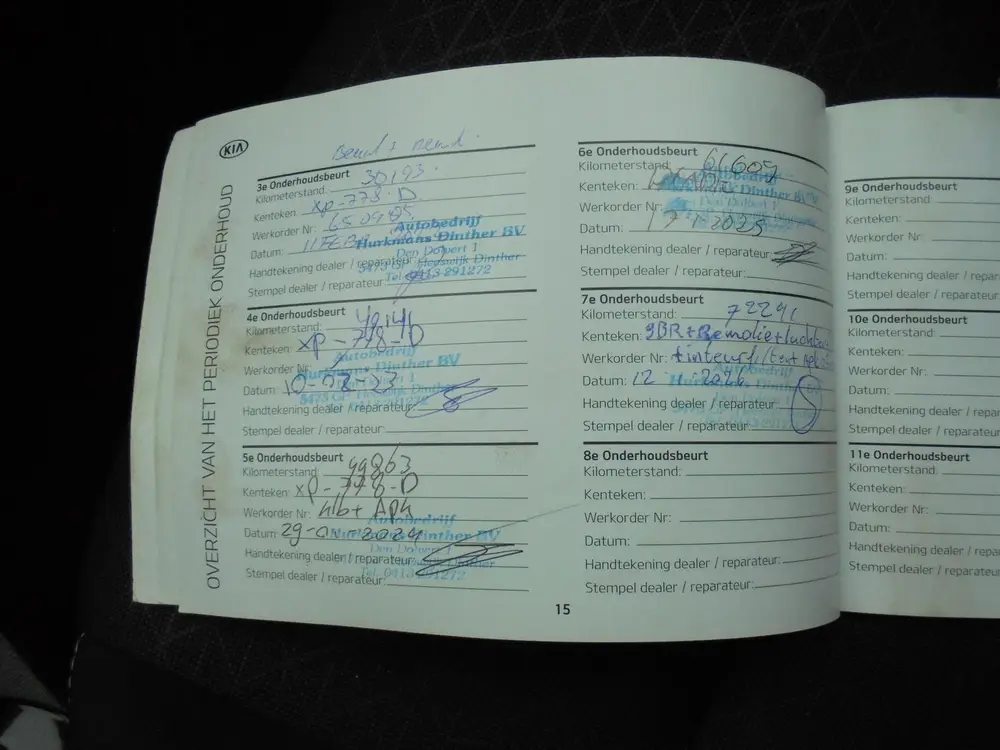 KIA
OVERZICHT VAN HET PERIODIEK ONDERHOUD
3e Onderhoudsbeurt
Kilometerstand: 30193
Kenteken: XP-778-D
Werkorder Nr:
Datum: 11 FEB
Autobedrijf
Hurkmans Dinther BV
Den Dolvert 1
5473 GP Heeswijk Dinther
Tel. 0413-291272
Handtekening dealer / reparateur:
Stempel dealer / reparateur:
4e Onderhoudsbeurt
Kilometerstand: 40141
Kenteken: XP-778-D
Werkorder Nr:
Autobedrijf
Hurkmans Dinther BV
Datum: 10-02-23
5473 GP Heeswijk Dinther
Handtekening dealer / reparateur:
Stempel dealer / reparateur:
5e Onderhoudsbeurt
Kilometerstand: 49863
Kenteken: XP-778-D
Werkorder Nr:
Autobedrijf
Datum: 29-01-2024
Hurkmans Dinther BV
Den Dolvert 1
Handtekening dealer / reparateur:
Tel. 0413-291272
Stempel dealer / reparateur:
6e Onderhoudsbeurt
Kilometerstand: 61609
Autobedrijf
Kenteken:
Dinther BV
Den Dolvert 1
Werkorder Nr:
Datum: 2025
Handtekening dealer / reparateur:
Stempel dealer / reparateur:
7e Onderhoudsbeurt
Kilometerstand: 72291
Kenteken: gBR+Remolie+lucht
Werkorder Nr: +interfilter+
Datum: 12 2026
Handtekening dealer / reparateur:
Stempel dealer / reparateur:
8e Onderhoudsbeurt
Kilometerstand:
Kenteken:
Werkorder Nr:
Datum:
Handtekening dealer / reparateur:
Stempel dealer / reparateur:
15
9e Onderhoudsbeurt
Kilometerstand:
Kenteken:
Werkorder Nr:
Datum:
Handtekening dealer / reparateu
Stempel dealer / reparateur:
10e Onderhoudsbeurt
Kilometerstand:
Kenteken:
Werkorder Nr:
Datum:
Handtekening dealer / reparate
Stempel dealer / reparateur
11e Onderhoudsbeurt
Kilometerstand:
Kenteken:
Werkorder Nr:
Datum:
Handtekening dealer / reparate
Stempel dealer / reparateur